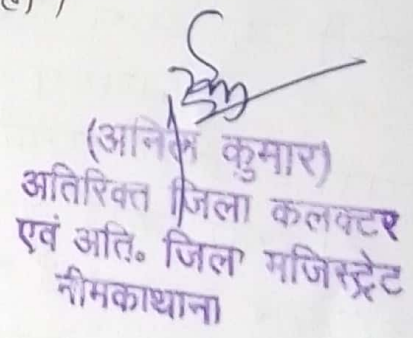 (अनिल कुमार)
अतिरिक्त जिला कलक्टर
एवं अति. जिला मजिस्ट्रेट
नीमकाथाना